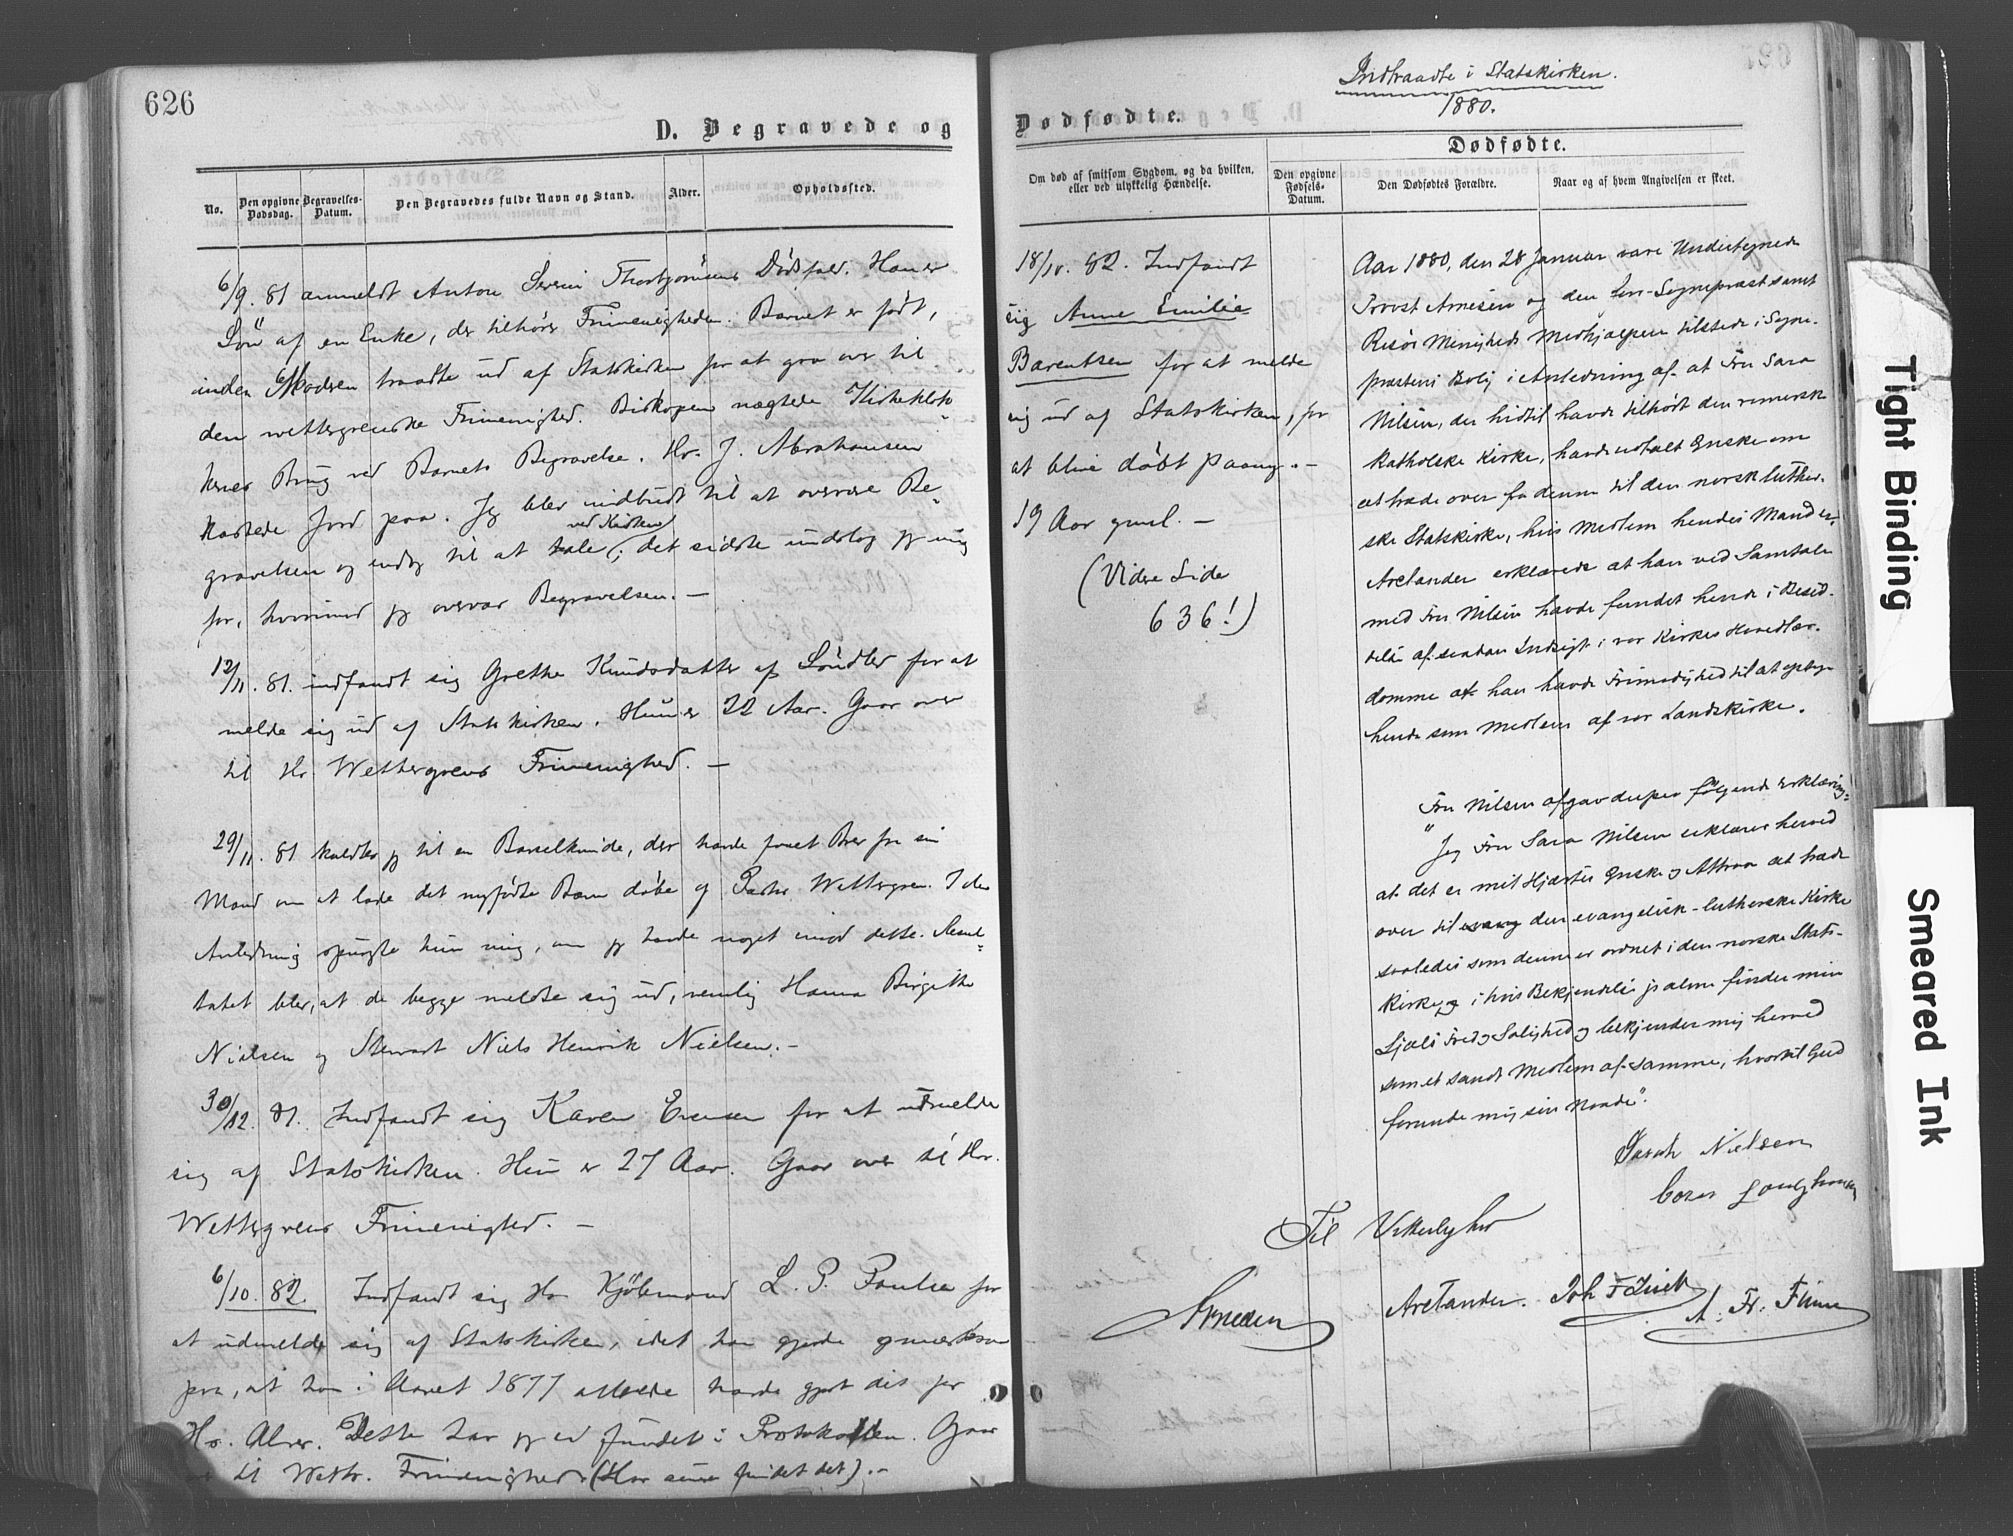 626
D. Begravede og
No.
Den opgivne Dødsdag.
Begravelses-Datum.
Den Begravedes fulde Navn og Stand.
Alder.
Opholdssted.
6/9. 81 anmeldt Anton Severin Dødsfald. Han er
Søn af en Enke, der tilhører Frimenigheden. Barnet er født,
inden Modren traadte ud af Statskirken for at gaa over til
den wettergrenske Frimenighed. Biskopen nægtede Kirkeklok-
kenes Brug ved Barnets Begravelse. Hr. J. Abrahamsen
kastede Jord paa. Jeg blev indbudt til at overvære Be-
gravelsen og endog til at tale ved Kirken; det sidste undslog jeg mig
for, hvorimod jeg overvar Begravelsen. —
12/11. 81. indfandt sig Grethe Knudsdatter af Søndeled for at
melde sig ud af Statskirken. Hun er 22 Aar. Gaar over
til Hr Wettergrens Frimenighed. —
29/11. 81 kaldtes jeg til en Barselkvinde, der havde faaet Brev fra sin
Mand om at lade det nyfødte Barn døbe af Pastor Wettergren. I den
Anledning spurgte hun mig, om jeg havde noget imod dette. Resul-
tatet blev, at de begge meldte sig ud, nemlig Hanna Birgitte
Nielsen og Stewart Niels Henrik Nielsen. —
30/12. 81. Indfandt sig Karen Evensen for at udmelde
sig af Statskirken. Hun er 27 Aar. Gaar over til Hr.
Wettergrens Frimenighed. —
6/10. 82. Indfandt sig Hr Kjøbmand L. P. Paulsen for
at udmelde sig af Statskirken, idet han gjorde opmærksom
paa, at han i Aaret 1877 allerede havde gjort det for
Hr. Alver. Dette har jeg ei fundet i Protokollen. Gaar
til Wettr. Frimenighed (Har senere fundet det). —
Indtraadte i Statskirken.
1880.
Dødfødte.
Dødfødte.
Om død af smitsom Sygdom, og da hvilken, eller ved ulykkelig Hændelse.
Den opgivne Fødsels-Datum.
Den Dødfødtes Forældre.
Naar og af hvem Angivelsen er skeet.
18/10. 82. Indfandt
sig Anne Emilie
Barentsen for at melde
sig ud af Statskirken, for
at blive døbt paany. —
19 Aar gml. —
(Videre Side
636!)
Aar 1880, den 28 Januar, vare Undertegnede
Provst Arnesen og den Sogneprest samt
Risør Menigheds Medhjælpere tilstede i Sogne-
præstens Bolig i Anledning af at Fru Sara
Nilsen, der hidtil havde tilhørt den romersk
katholske Kirke, havde udtalt Ønske om
at træde over fra denne til den norsk luther-
ske Statskirke, hvis Medlem hendes Mand er.
Arctander erklærede at han ved Samtale
med Fru Nilsen havde fundet hende i Besid-
delse af saadan Indsigt i vor Kirkes Hovedlær-
domme at han havde Frimodighed til at optage
hende som Medlem af vor Landskirke.
Fru Nilsen afgav derpaa følgende Erklæring:
"Jeg Fru Sara Nilsen erklærer herved
at det er mit Hjærtes Ønske og Attraa at træde
over til den evangelisk-lutherske Kirke
saaledes som denne er ordnet i den norske Stats-
kirke, og i hvis Bekjendelse jeg alene finder min
Sjæls Fred og Salighed og bekjender mig herved
som et sandt Medlem af samme, hvortil Gud
forunde mig sin Naade".
Sarah Nielsen
Til Vitterlighed
Arnesen
Arctander.
A. Fr. Finne
Tight Binding
Smeared Ink